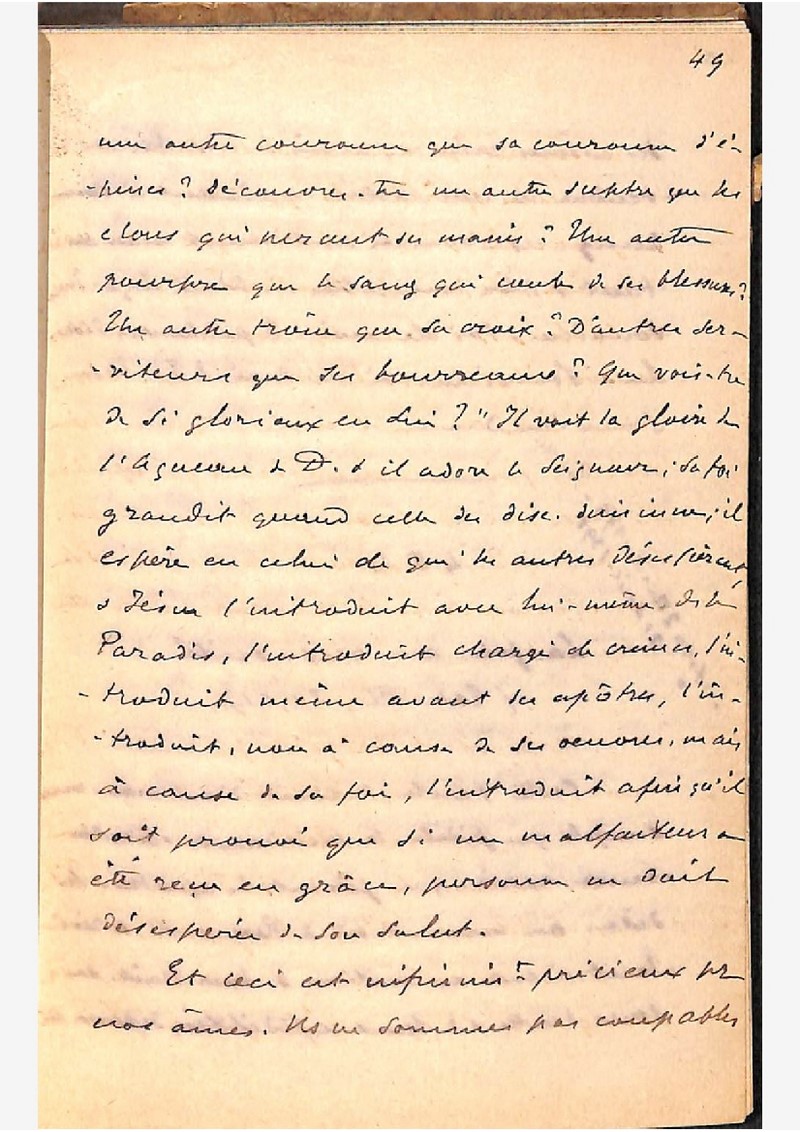 49
une autre couronne que sa couronne d'é-
-pines? Découvres-tu un autre sceptre que les
clous qui percent ses mains? Une autre
pourpre que le sang qui coule de ses blessures?
Un autre trône que sa croix? D'autres ser-
-viteurs que ses bourreaux? Que vois-tu
de si glorieux en Lui?" Il voit la gloire de
l'Agneau de D. & il adore le Seigneur; sa foi
grandit quand celle des disc. diminue; il
espère en celui de qui les autres désespèrent,
& Jésus l'introduit avec lui-même ds le
Paradis, l'introduit chargé de crimes, l'in-
-troduit même avant ses apôtres, l'in-
-troduit, non à cause de ses oeuvres, mais
à cause de sa foi, l'introduit afin qu'il
soit prouvé que si un malfaiteur a
été reçu en grâce, personne ne doit
désespérer de son salut.
Et ceci est infinimt précieux pr
nos âmes. Ns ne sommes pas coupables